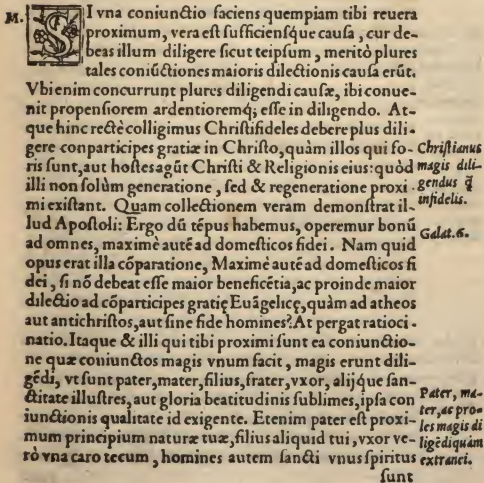 M.
SI vna coniunctio faciens quempiam tibi reuera
proximum, vera est sufficiensque causa, cur de-
beas illum diligere sicut teipsum, meritò plures
tales coniūctiones maioris dilectionis causa erūt.
Vbi enim concurrunt plures diligendi causæ, ibi conue-
nit propensiorem ardentioremq; esse in diligendo. At-
que hinc rectè colligimus Christifideles debere plus dili-
gere conparticipes gratiæ in Christo, quàm illos qui fo-
ris sunt, aut hostes agūt Christi & Religionis eius: quòd
illi non solùm generatione, sed & regeneratione proxi-
mi existant. Quam collectionem veram demonstrat il-
lud Apostoli: Ergo dū tēpus habemus, operemur bonū
ad omnes, maximè autē ad domesticos fidei. Nam quid
opus erat illa cōparatione, Maximè autē ad domesticos fi
dei, si nō debeat esse maior beneficētia, ac proinde maior
dilectio ad cōparticipes gratię Euāgelicę, quàm ad atheos
aut antichristos, aut sine fide homines? At pergat ratioci-
natio. Itaque & illi qui tibi proximi sunt ea coniunctio-
ne quæ coniunctos magis vnum facit, magis erunt dili-
gēdi, vt sunt pater, mater, filius, frater, vxor, alijque san-
ctitate illustres, aut gloria beatitudinis sublimes, ipsa con
iunctionis qualitate id exigente. Etenim pater est proxi-
mum principium naturæ tuæ, filius aliquid tui, vxor ve-
rò vna caro tecum, homines autem sancti vnus spiritus
sunt
Christianus
magis dili-
gendus q̃
infidelis.
Galat.6.
Pater, ma-
ter, ac pro-
les magis di
ligēdi quàm
extranei.